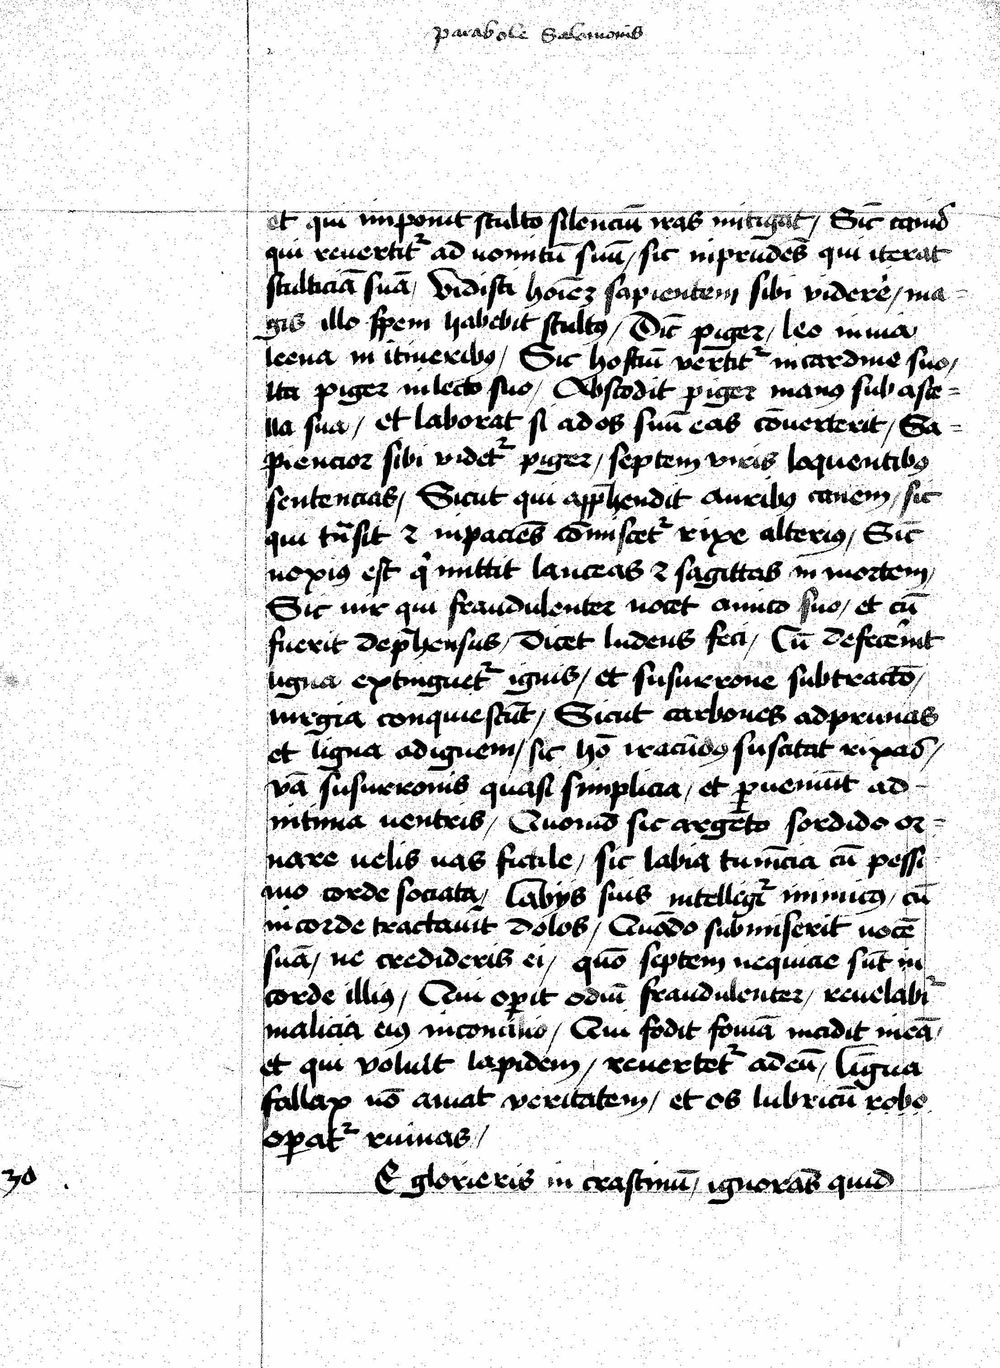 parabole Salamonis
et qui imponit stulto silenciū iras mitigat / Sic̄ canis
qui revertit᷑ ad uomitū suū / sic inprudēs qui iterat
stulticiā suā / Vidisti hoīeʒ sapientem sibi videre / ma=
gis illo spem habebit stultꝰ / Dic̄ piger / leo in uia
leena in itineribꝰ / Sic hostiū vertit᷑ in cardine suo /
Ita piger in lecto suo / Abscōdit piger manꝰ sub asce=
lla sua / et laborat si ad os suū eas cōverterit / Sa=
piencior sibi videt᷑ piger / septem viris loquentibꝰ
sentencias / Sicut qui app̄hendit auribꝰ canem / sic
qui tn̄sit ⁊ inpaciēs cōmiscet᷑ rixe alteriꝰ / Sic̄
noxiꝰ est qͥ mittit lanceas ⁊ sagittas in mortem /
Sic uir qui fraudulenter nocet amico suo / et cū
fuerit dep̄hensus / dicet ludens feci / Cū defecerīt
ligna extinguet᷑ ignis / et susurrone subtracto /
iurgia conquiescūt / Sicut carbones ad prunas
et ligna ad ignem / sic hō iracūdꝰ suscitat rixas /
vā susurronis quasi simplicia / et ꝑueniūt ad
intima uentris / Quomō sic argēto sordido or=
nare uelis uas fictile / sic labia tumēcia cū pessi
mo corde sociata / Labijs suis intelligit᷑ inimicꝰ / cū
in corde tractauīt dolos / Quādo submiserit uocē
suā / ne credideris ei / quō septem nequicie sūt in
corde illiꝰ / Qui oꝑit odiū fraudulenter / reuelabit᷑
malicia eiꝰ in concilio / Qui fodit foueā incidit in eā /
et qui voluit lapidem / reuertet᷑ ad eū / Lingua
fallax nō amat veritatem / et os lubricū
oꝑat᷑ ruinas /
E glorieris in crastinū / ignorās quid
30